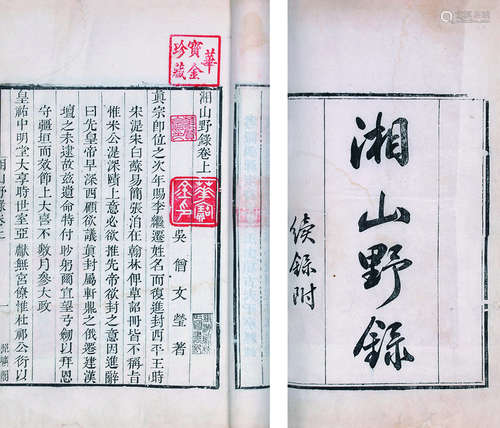 湘山野錄
續錄附
湘山野錄卷上
吳僧文瑩著
真宗即位之次年賜李繼遷姓名而復進封西平王時
宋湜宋白蘇易簡張洎在翰林俾草詔冊皆不稱旨
惟宋公湜深賾上意必欲推先帝欲封之意因進辭
曰先皇帝早深西顧欲議真封屬軒鼎之俄遷建漢
壇之未逮故茲遺命特付眇躬爾宜望弓劒以拜恩
守疆垣而效節上大喜不數月參大政
皇祐中明堂大享時世室亞獻無宮僚惟杜祁公衍以
湘山野錄卷上
華
寶金
珍藏